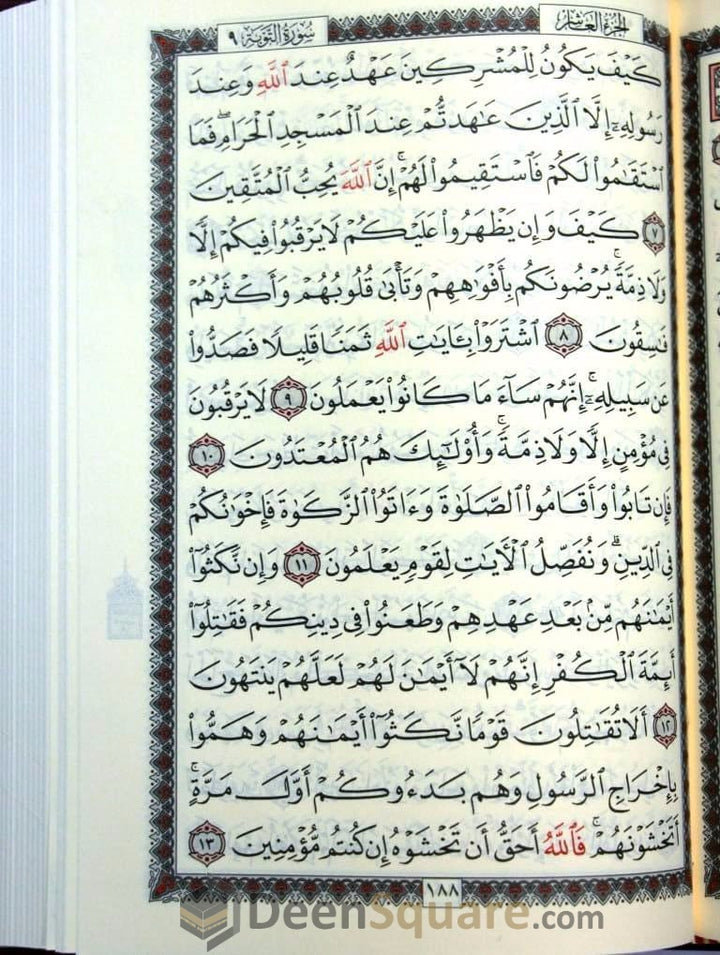 الجزء العاشر
سورة التوبة ٩
كَيْفَ يَكُونُ لِلْمُشْرِكِينَ عَهْدٌ عِندَ ٱللَّهِ وَعِندَ
رَسُولِهِۦٓ إِلَّا ٱلَّذِينَ عَٰهَدتُّمْ عِندَ ٱلْمَسْجِدِ ٱلْحَرَامِۖ فَمَا
ٱسْتَقَٰمُوا۟ لَكُمْ فَٱسْتَقِيمُوا۟ لَهُمْۚ إِنَّ ٱللَّهَ يُحِبُّ ٱلْمُتَّقِينَ
٧ كَيْفَ وَإِن يَظْهَرُوا۟ عَلَيْكُمْ لَا يَرْقُبُوا۟ فِيكُمْ إِلًّا
وَلَا ذِمَّةًۚ يُرْضُونَكُم بِأَفْوَٰهِهِمْ وَتَأْبَىٰ قُلُوبُهُمْ وَأَكْثَرُهُمْ
فَٰسِقُونَ ٨ ٱشْتَرَوْا۟ بِـَٔايَٰتِ ٱللَّهِ ثَمَنًا قَلِيلًا فَصَدُّوا۟
عَن سَبِيلِهِۦٓۚ إِنَّهُمْ سَآءَ مَا كَانُوا۟ يَعْمَلُونَ ٩ لَا يَرْقُبُونَ
فِى مُؤْمِنٍ إِلًّا وَلَا ذِمَّةًۚ وَأُو۟لَٰٓئِكَ هُمُ ٱلْمُعْتَدُونَ ١٠
فَإِن تَابُوا۟ وَأَقَامُوا۟ ٱلصَّلَوٰةَ وَءَاتَوُا۟ ٱلزَّكَوٰةَ فَإِخْوَٰنُكُمْ
فِى ٱلدِّينِۗ وَنُفَصِّلُ ٱلْـَٔايَٰتِ لِقَوْمٍ يَعْلَمُونَ ١١ وَإِن نَّكَثُوٓا۟
أَيْمَٰنَهُم مِّنۢ بَعْدِ عَهْدِهِمْ وَطَعَنُوا۟ فِى دِينِكُمْ فَقَٰتِلُوٓا۟
أَئِمَّةَ ٱلْكُفْرِۙ إِنَّهُمْ لَآ أَيْمَٰنَ لَهُمْ لَعَلَّهُمْ يَنتَهُونَ
١٢ أَلَا تُقَٰتِلُونَ قَوْمًا نَّكَثُوٓا۟ أَيْمَٰنَهُمْ وَهَمُّوا۟
بِإِخْرَاجِ ٱلرَّسُولِ وَهُم بَدَءُوكُمْ أَوَّلَ مَرَّةٍۚ
أَتَخْشَوْنَهُمْۚ فَٱللَّهُ أَحَقُّ أَن تَخْشَوْهُ إِن كُنتُم مُّؤْمِنِينَ ١٣
١٨٨
DeenSquare.com